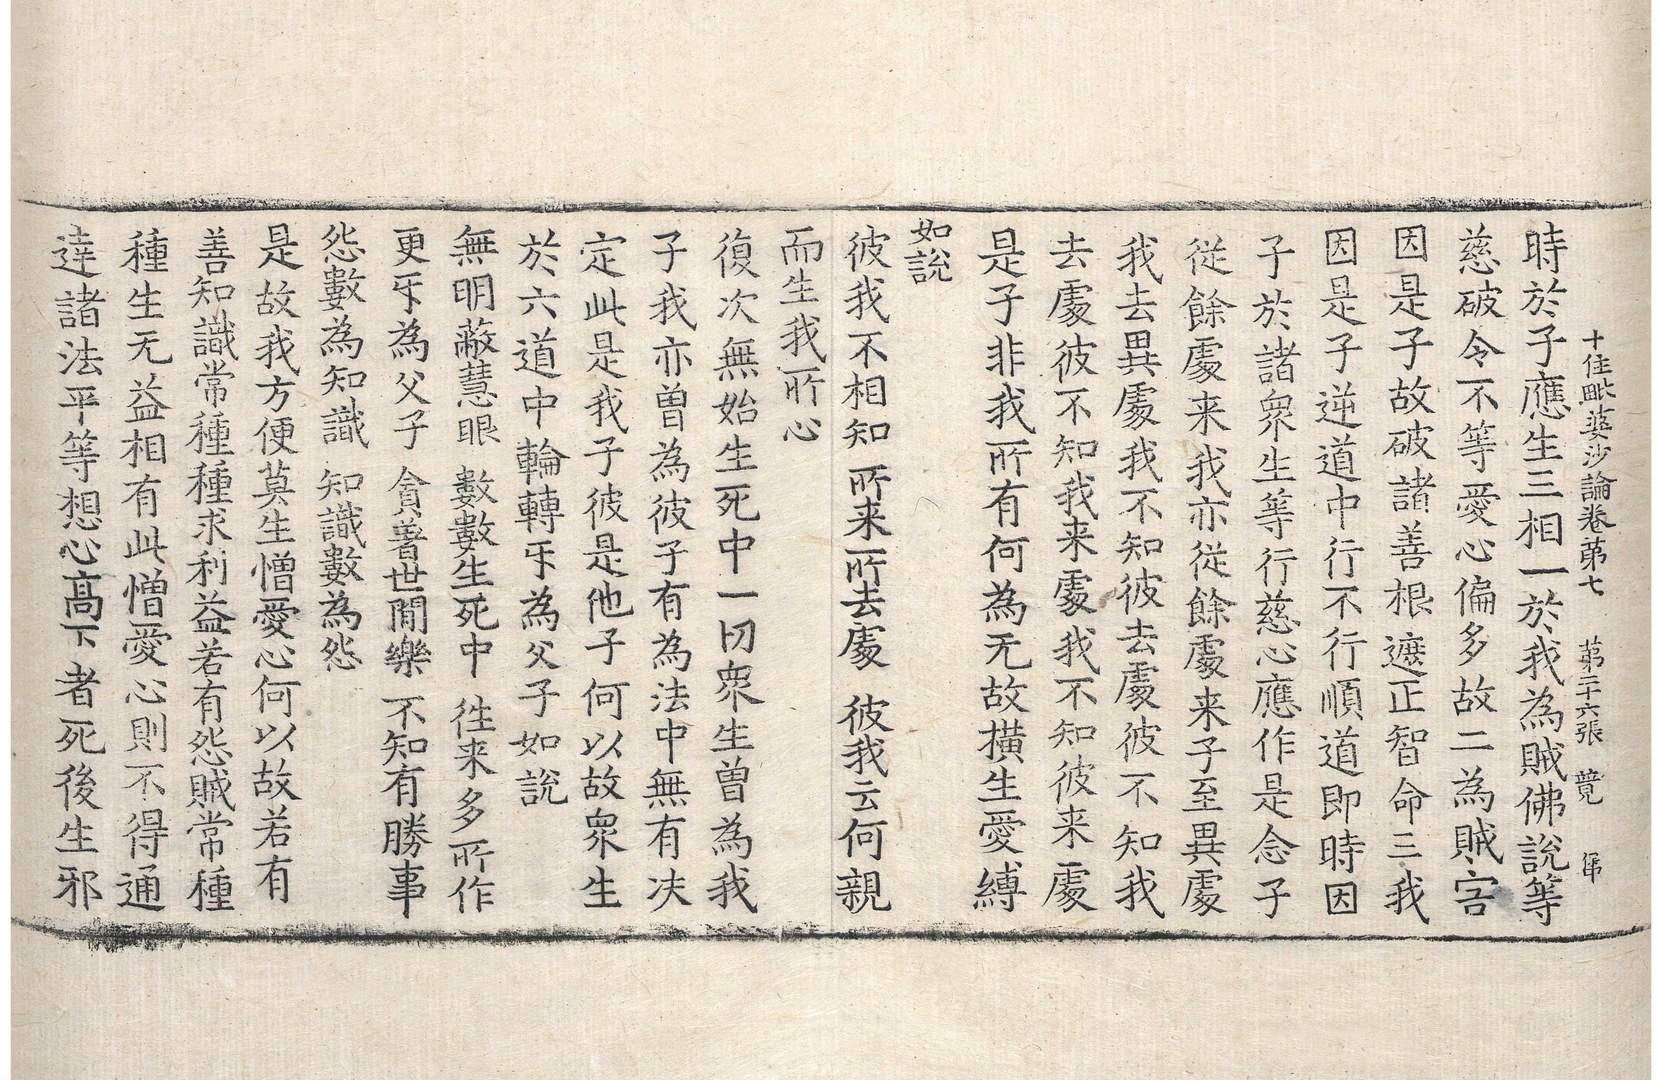 十住毗婆沙論卷苐七 第二十六張 竟
時於子應生三相一於我為賊佛說等
慈破令不等愛心偏多故二為賊害
因是子故破諸善根遮正智命三我
因是子逆道中行不行順道即時因
子於諸衆生等行慈心應作是念子
從餘處来我亦從餘處来子至異處
我去異處我不知彼去處彼不知我
去處彼不知我来處我不知彼来處
是子非我所有何為无故橫生愛縛
如說
彼我不相知 所来所去處 彼我云何親
而生我所心
復次無始生死中一切衆生曾為我
子我亦曾為彼子有為法中無有决
定此是我子彼是他子何以故衆生
於六道中輪轉牙為父子如說
無明蔽慧眼 數數生死中 徃来多所作
更牙為父子 貪著世閒樂 不知有勝事
怨數為知識 知識數為怨
是故我方便莫生憎愛心何以故若有
善知識常種種求利益若有怨賊常種
種生无益相有此憎愛心則不得通
達諸法平等想心高下者死後生邪